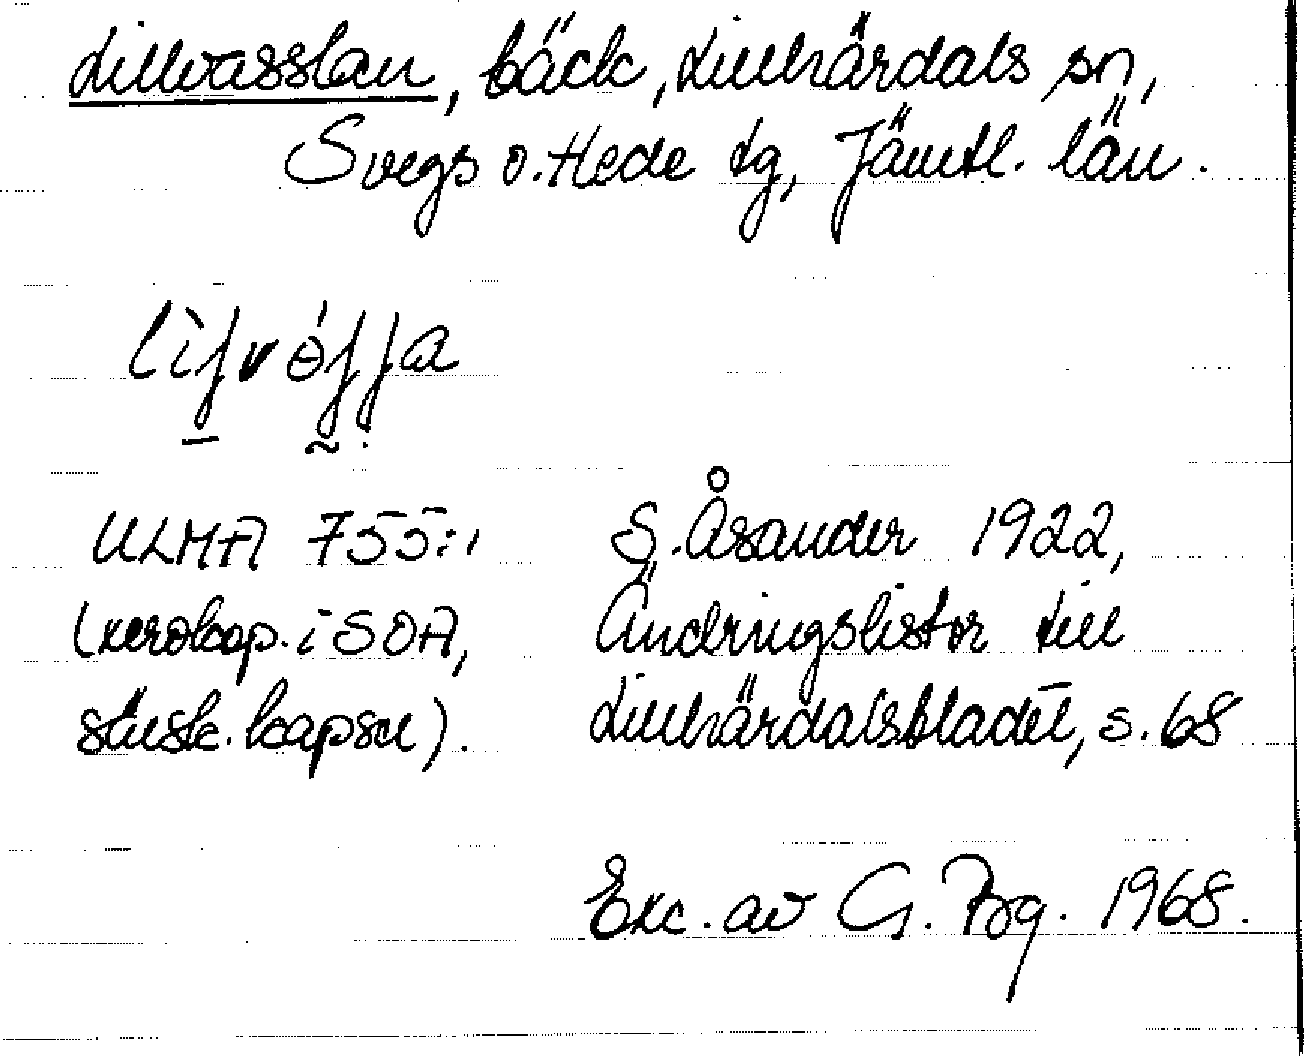 Lillvasslan, bäck, Lillhärdals sn,
Svegs o. Hede tg, Jämtl. län.
ULMA 755:1
(xerokop. i SOA,
släskl. kapsel).
S. Åsander 1922,
Ändringslistor till
Lillhärdalsbladet, s. 68
Exc. av G. Bg. 1968.